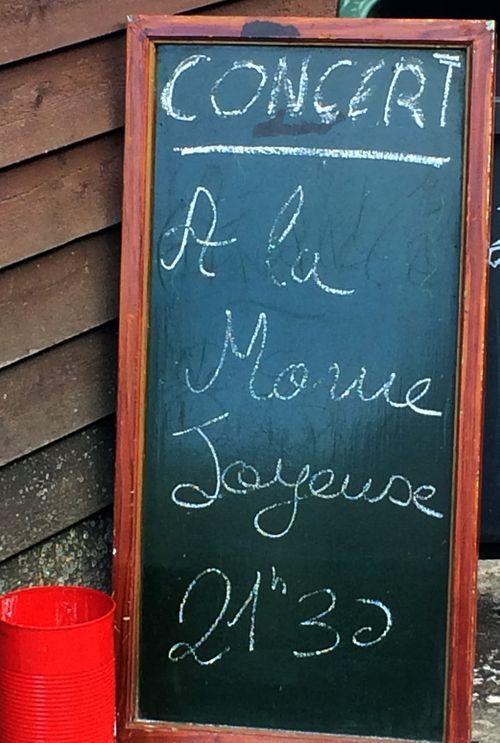 CONCERT
A la
Morue
Joyeuse
21h30